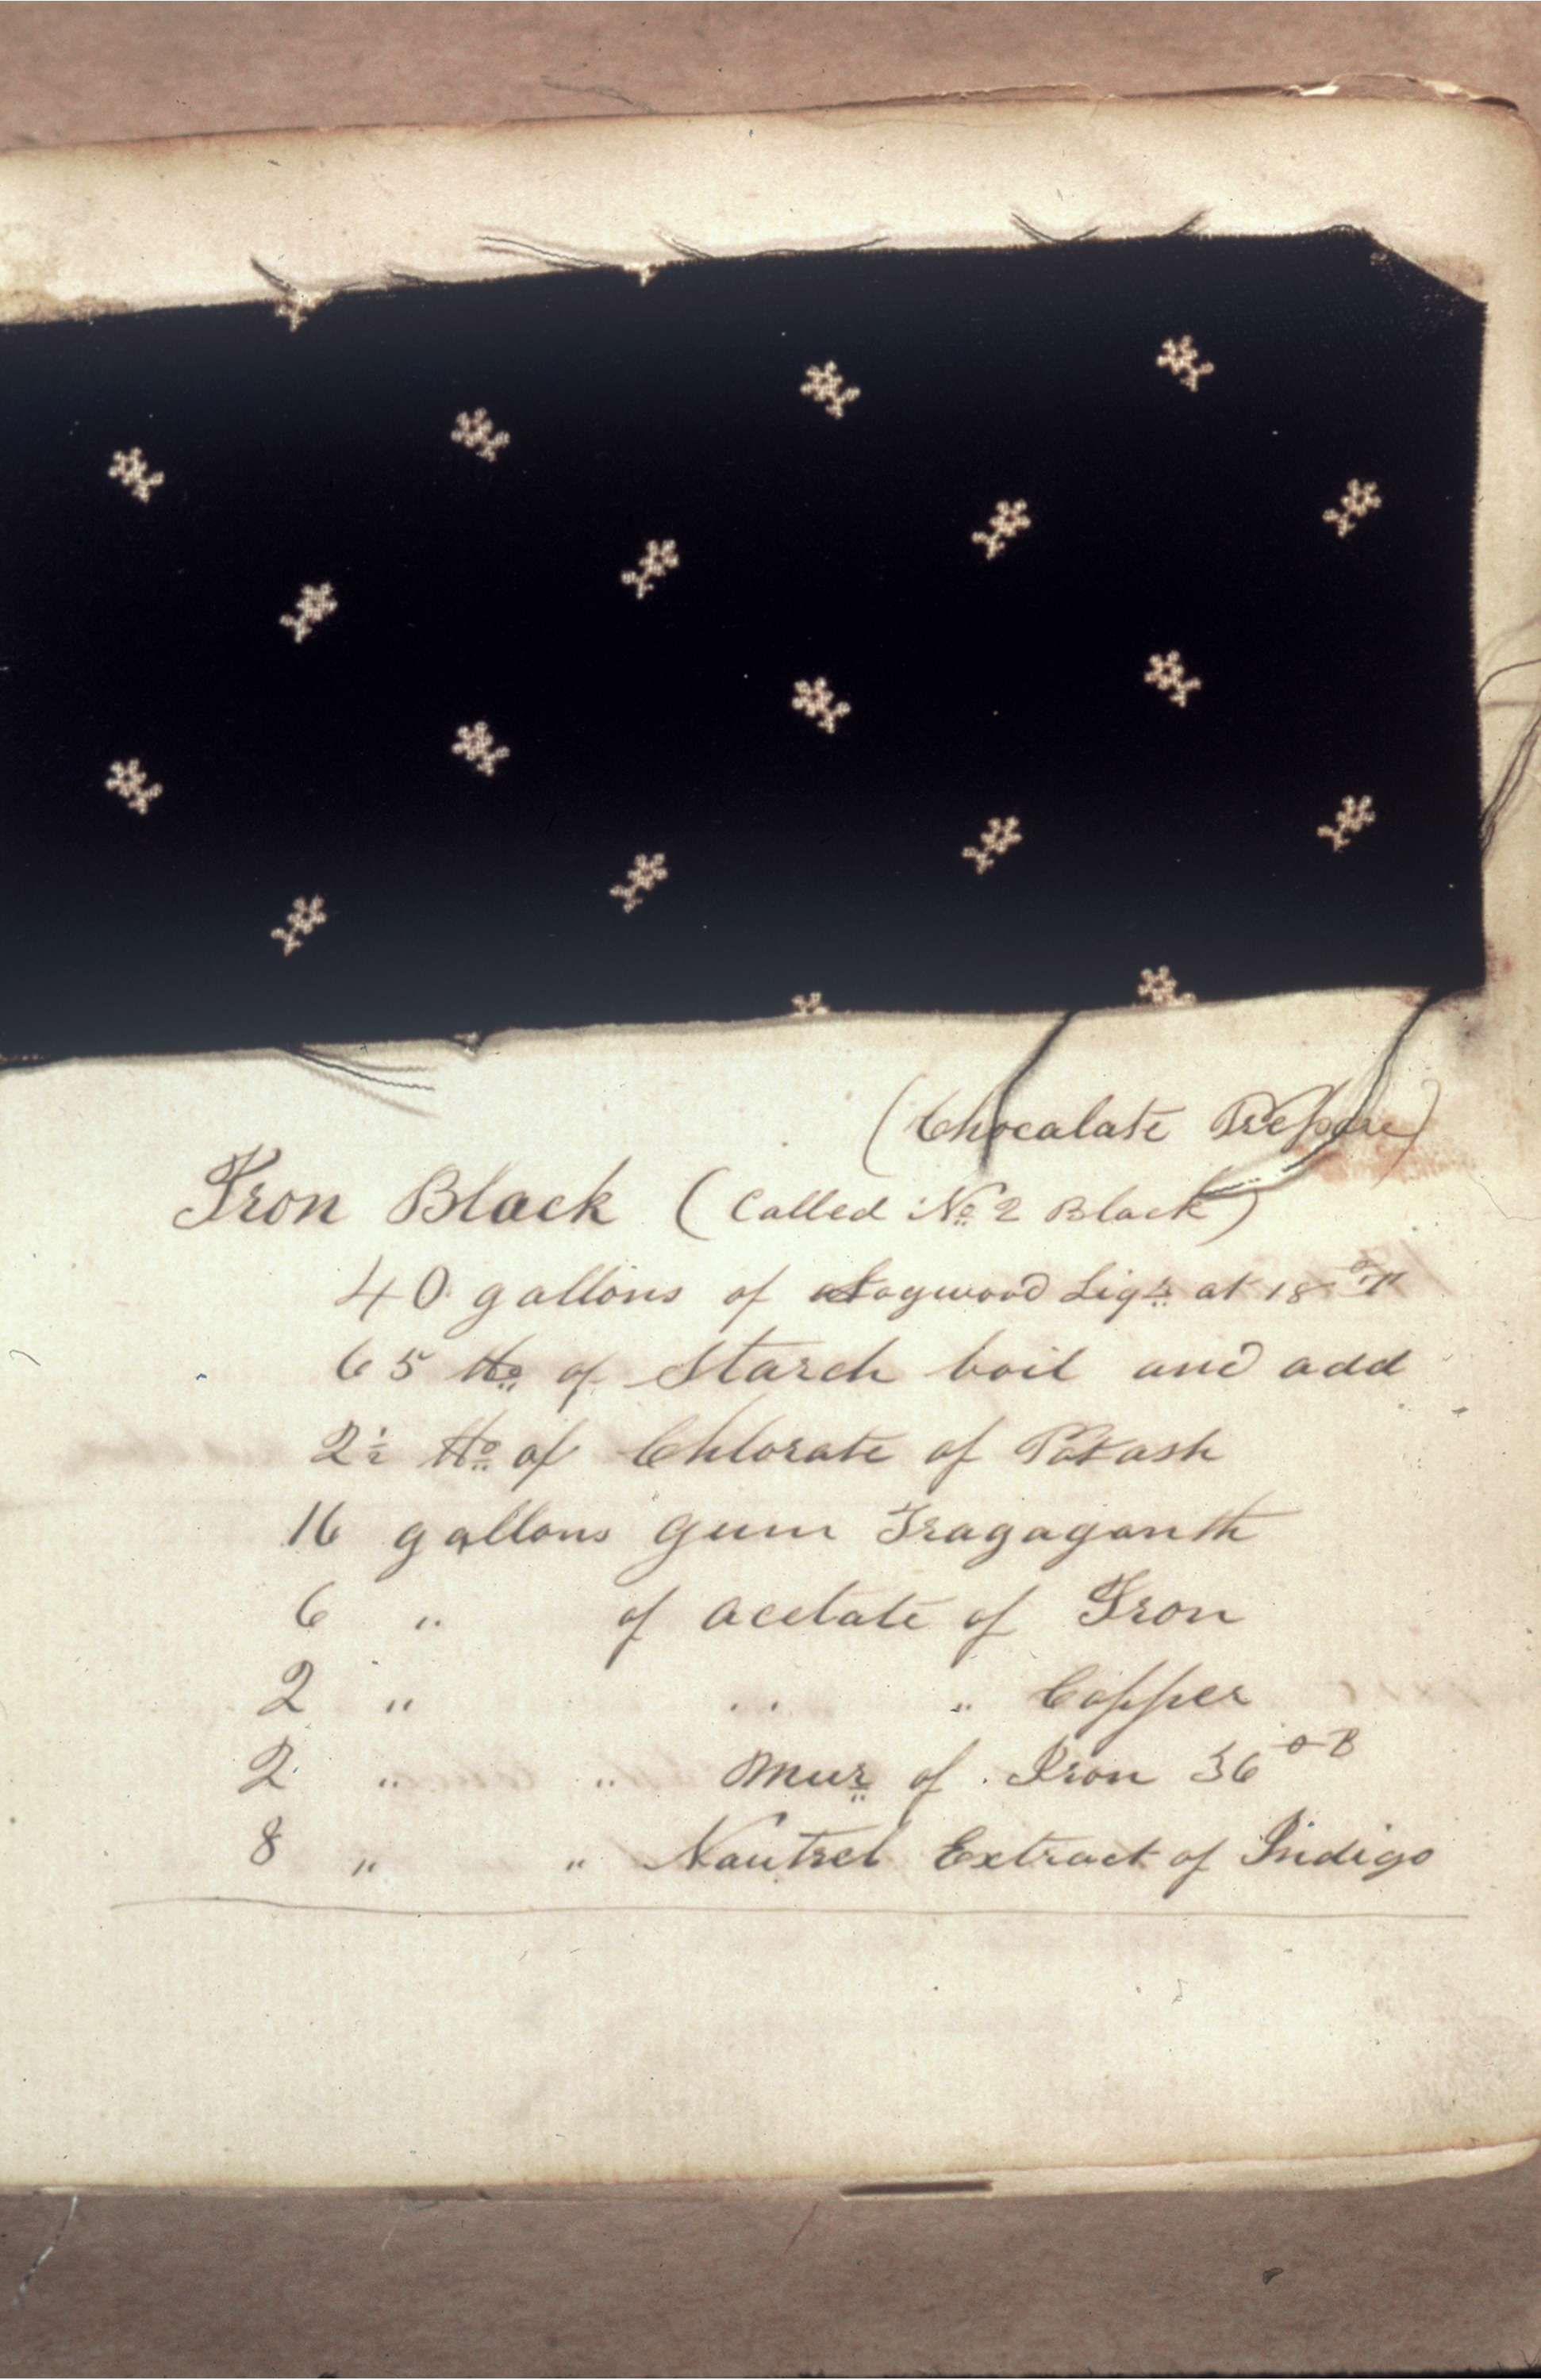 (Chocalate Prepare)
Iron Black (Called No 2 Black)
40 gallons of Logwood Liqr at 18 °T
65 lbs of Starch boil and add
2½ lbs of Chlorate of Potash
16 gallons Gum Tragaganth
6 " of acetate of Iron
2 " " " Copper
2 " " Mur of Iron 36 °B
8 " " Nautrel Extract of Indigo